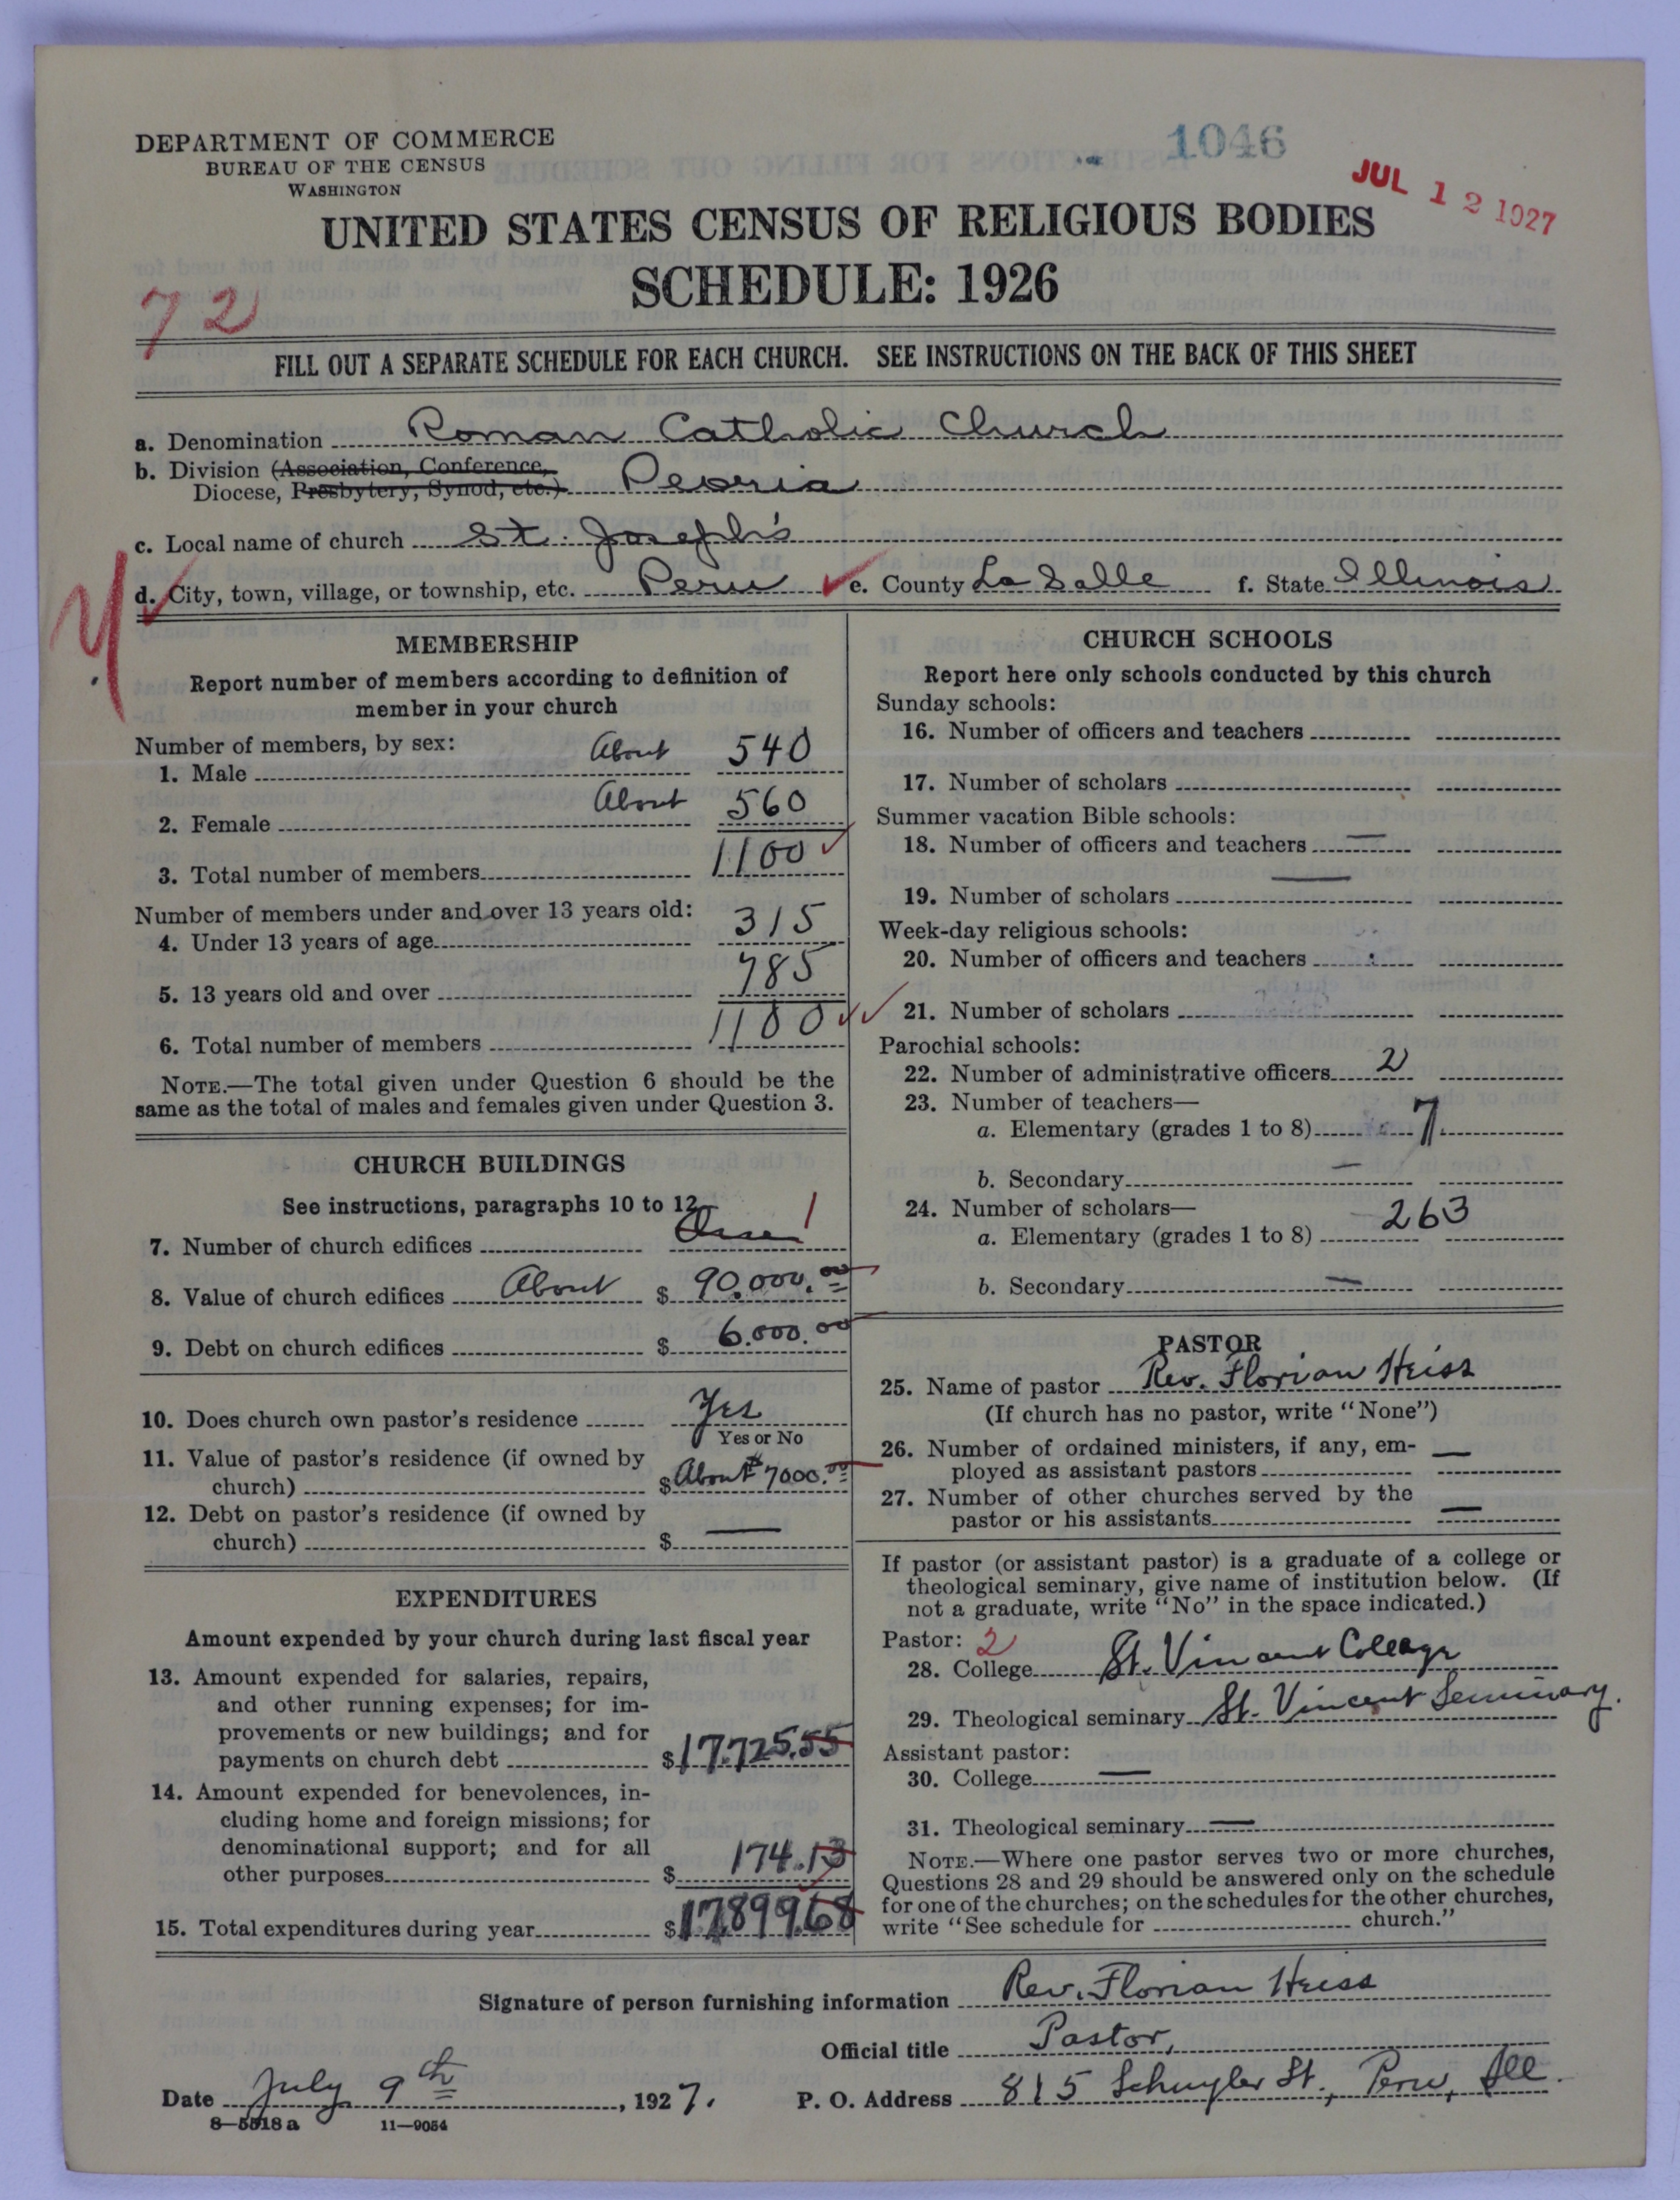 DEPARTMENT OF COMMERCE
BUREAU OF THE CENSUS
WASHINGTON
1046
JUL 12 1927
UNITED STATES CENSUS OF RELIGIOUS BODIES
SCHEDULE: 1926
72
FILL OUT A SEPARATE SCHEDULE FOR EACH CHURCH. SEE INSTRUCTIONS ON THE BACK OF THIS SHEET
a. Denomination Roman Catholic Church
b. Division (Association, Conference,
Diocese, Presbytery, Synod, etc.) Peoria
c. Local name of church St. Joseph's
d. City, town, village, or township, etc. Peru e. County La Salle f. State Illinois
MEMBERSHIP
Report number of members according to definition of
member in your church
Number of members, by sex:
1. Male About 540
2. Female About 560
3. Total number of members 1100
Number of members under and over 13 years old:
4. Under 13 years of age 315
5. 13 years old and over 785
6. Total number of members 1100
NOTE.—The total given under Question 6 should be the
same as the total of males and females given under Question 3.
CHURCH BUILDINGS
See instructions, paragraphs 10 to 12
7. Number of church edifices 1
8. Value of church edifices About $ 90.000.00
9. Debt on church edifices $ 6.000.00
10. Does church own pastor's residence Yes
Yes or No
11. Value of pastor's residence (if owned by
church) $ About $7000.00
12. Debt on pastor's residence (if owned by
church) $ —
EXPENDITURES
Amount expended by your church during last fiscal year
13. Amount expended for salaries, repairs,
and other running expenses; for im-
provements or new buildings; and for
payments on church debt $ 17.725.55
14. Amount expended for benevolences, in-
cluding home and foreign missions; for
denominational support; and for all
other purposes $ 174.13
15. Total expenditures during year $ 17.899.68
CHURCH SCHOOLS
Report here only schools conducted by this church
Sunday schools:
16. Number of officers and teachers
17. Number of scholars
Summer vacation Bible schools:
18. Number of officers and teachers —
19. Number of scholars —
Week-day religious schools:
20. Number of officers and teachers
21. Number of scholars
Parochial schools:
22. Number of administrative officers 2
23. Number of teachers—
a. Elementary (grades 1 to 8) 7
b. Secondary —
24. Number of scholars—
a. Elementary (grades 1 to 8) 263
b. Secondary —
PASTOR
25. Name of pastor Rev. Florian Heiss
(If church has no pastor, write "None")
26. Number of ordained ministers, if any, em-
ployed as assistant pastors —
27. Number of other churches served by the
pastor or his assistants —
If pastor (or assistant pastor) is a graduate of a college or
theological seminary, give name of institution below. (If
not a graduate, write "No" in the space indicated.)
Pastor: 2
28. College St. Vincent College
29. Theological seminary St. Vincent Seminary.
Assistant pastor:
30. College —
31. Theological seminary —
NOTE.—Where one pastor serves two or more churches,
Questions 28 and 29 should be answered only on the schedule
for one of the churches; on the schedules for the other churches,
write "See schedule for church."
Signature of person furnishing information Rev. Florian Heiss
Official title Pastor,
Date July 9th, 1927. P. O. Address 815 Schuyler St., Peru, Ill.
8—5518 a 11—9054